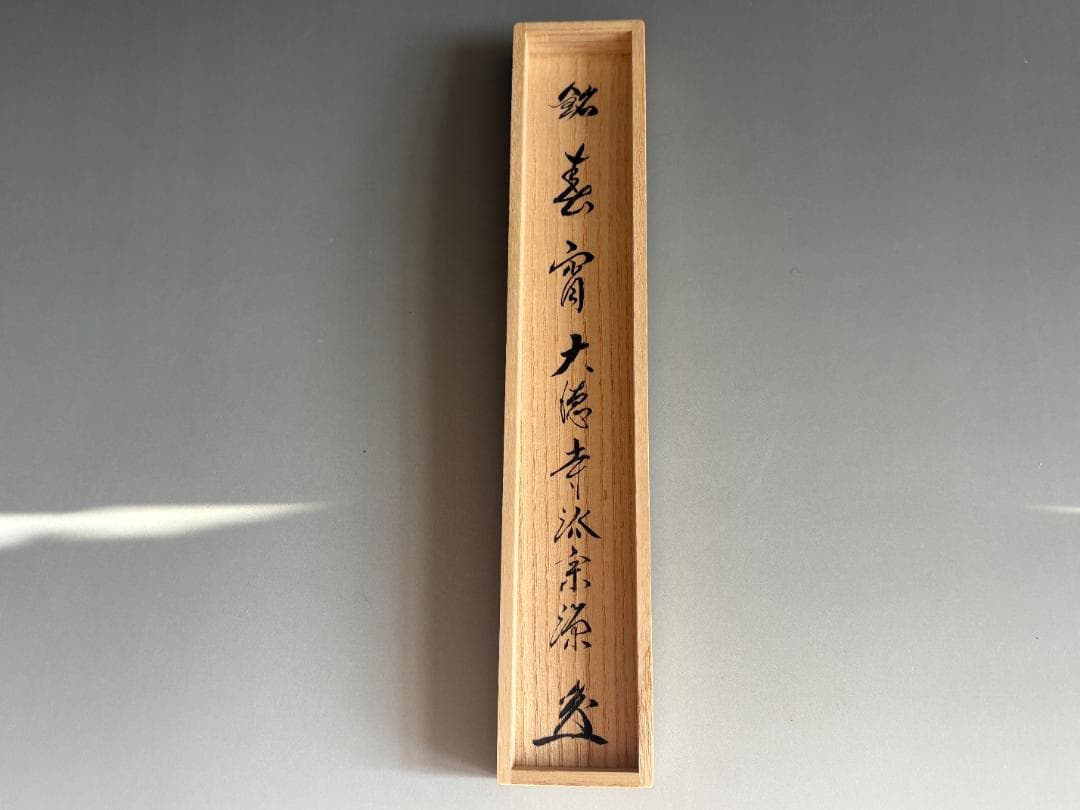 銘 春宵 大徳寺派宗源